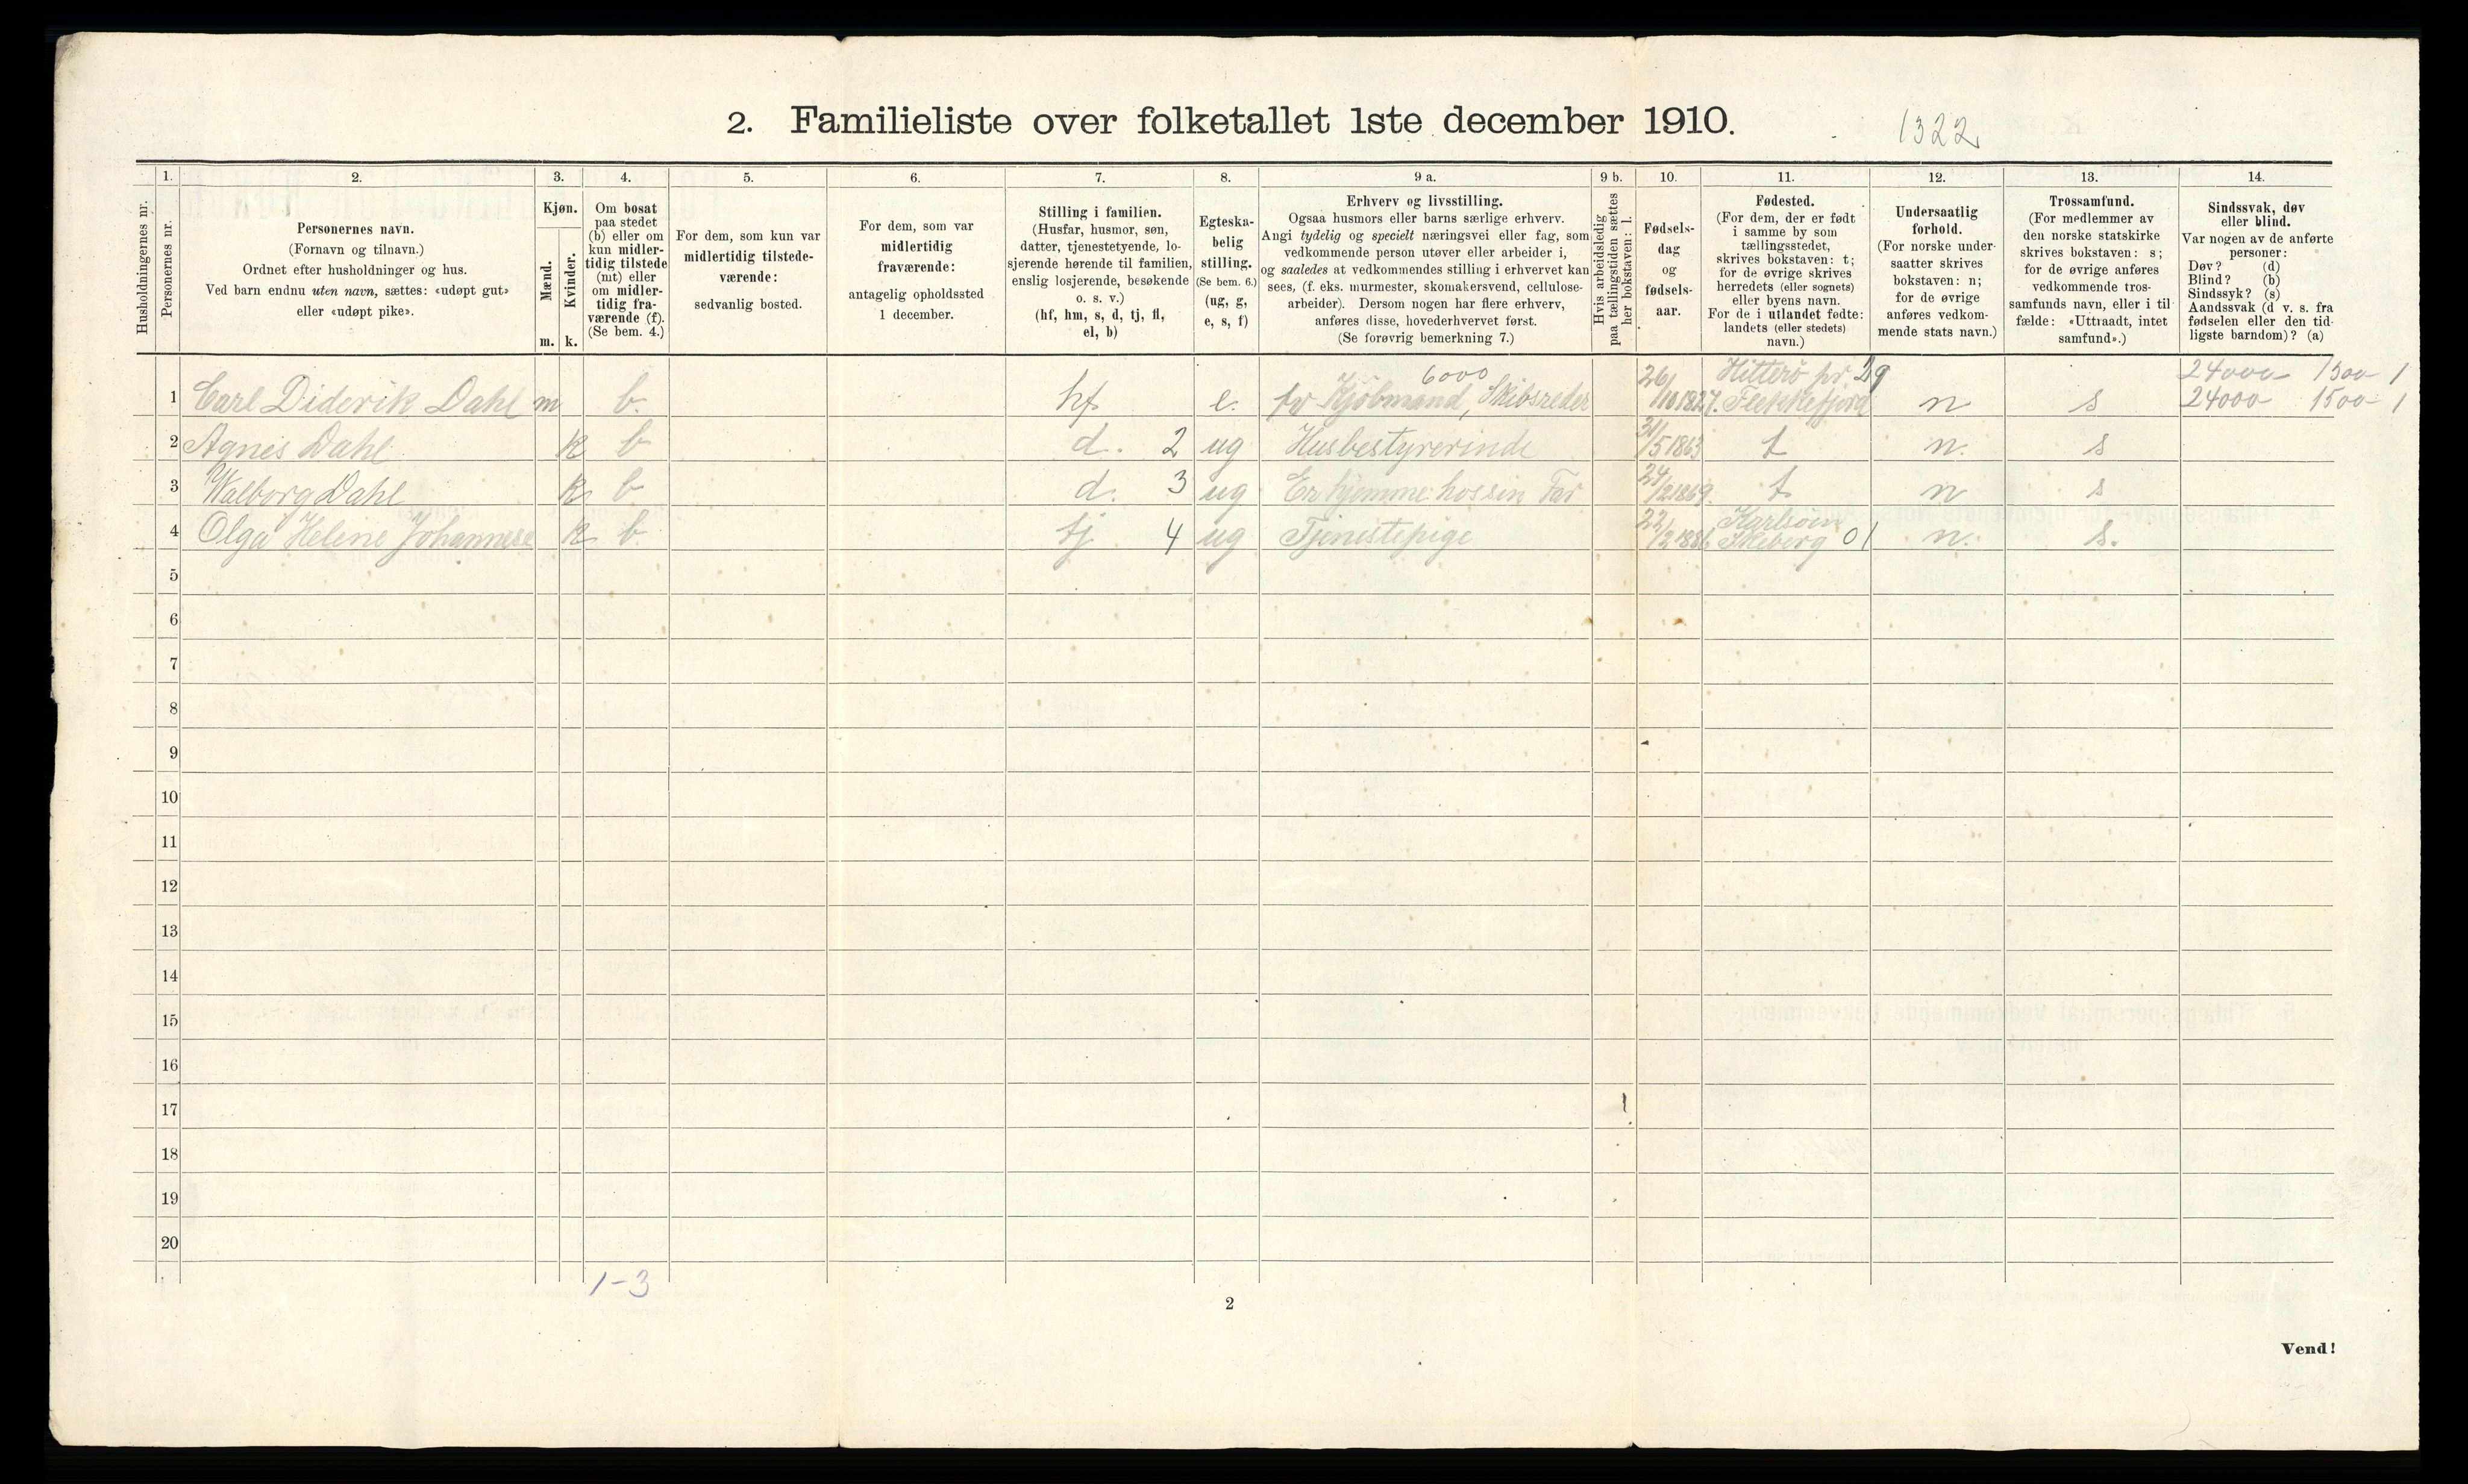 2. Familieliste over folketallet 1ste december 1910. 1322
Husholdningernes nr.
1.
Personernes nr.
2.
Personernes navn.
(Fornavn og tilnavn.)
Ordnet efter husholdninger og hus.
Ved barn endnu uten navn, sættes: «udøpt gut»
eller «udøpt pike».
3.
Kjøn.
Mænd.
Kvinder.
m. k.
4.
Om bosat
paa stedet
(b) eller om
kun midler-
tidig tilstede
(mt) eller
om midler-
tidig fra-
værende (f).
(Se bem. 4.)
5.
For dem, som kun var
midlertidig tilstede-
værende:
sedvanlig bosted.
6.
For dem, som var
midlertidig
fraværende:
antagelig opholdssted
1 december.
7.
Stilling i familien.
(Husfar, husmor, søn,
datter, tjenestetyende, lo-
sjerende hørende til familien,
enslig losjerende, besøkende
o. s. v.)
(hf, hm, s, d, tj, fl,
el, b)
8.
Egteska-
belig
stilling.
(Se bem. 6.)
(ug, g,
e, s, f)
9 a.
Erhverv og livsstilling.
Ogsaa husmors eller barns særlige erhverv.
Angi tydelig og specielt næringsvei eller fag, som
vedkommende person utøver eller arbeider i,
og saaledes at vedkommendes stilling i erhvervet kan
sees, (f. eks. murmester, skomakersvend, cellulose-
arbeider). Dersom nogen har flere erhverv,
anføres disse, hovederhvervet først.
(Se forøvrig bemerkning 7.)
9 b.
Hvis arbeidsledig
paa tællingstiden sættes
her bokstaven: l.
10.
Fødsels-
dag
og
fødsels-
aar.
11.
Fødested.
(For dem, der er født
i samme by som
tællingsstedet,
skrives bokstaven: t;
for de øvrige skrives
herredets (eller sognets)
eller byens navn.
For de i utlandet fødte:
landets (eller stedets)
navn.)
12.
Undersaatlig
forhold.
(For norske under-
saatter skrives
bokstaven: n;
for de øvrige
anføres vedkom-
mende stats navn.)
13.
Trossamfund.
(For medlemmer av
den norske statskirke
skrives bokstaven: s;
for de øvrige anføres
vedkommende tros-
samfunds navn, eller i til-
fælde: «Uttraadt, intet
samfund».)
14.
Sindssvak, døv
eller blind.
Var nogen av de anførte
personer:
Døv? (d)
Blind? (b)
Sindssyk? (s)
Aandssvak (d v. s. fra
fødselen eller den tid-
ligste barndom)? (a)
6000 Hitterö pr. 29 24000- 1500- 1
1 Carl Diderik Dahl m b. hf e. fv Kjöbmand, Skibsreder 26/10 1827. Flekkefjord n s 24000 1500- 1
2 Agnes Dahl k b d. 2 ug Husbestyrerinde 31/5 1863 t n. s
3 Walborg Dahl k b d. 3 ug Er hjemme hos sin Far 24/2 1869. t n s
Karlsöen
4 Olga Helene Johannese k b. tj 4 ug Tjenestepige 22/2 1886. Skeberg 01 n. s.
5
6
7
8
9
10
11
12
13
14
15
16
17
18
19
20
1-3
2
Vend!